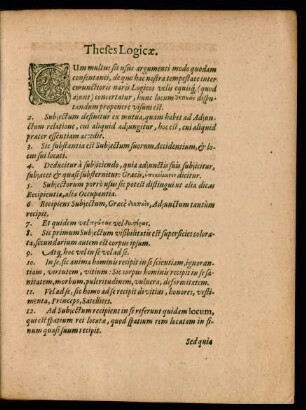 Theses Logicæ.
CUm multus sit usus argumenti modo quodam
consentanei, de quo hac nostra tempestate inter
emunctioris naris Logicos velis equisq; (quod
ajunt) concertatur, hunc locum dispu-
tandum proponere visum est.
2. Subjectum definitur ex mutua, quam habet ad Adjun-
ctum relatione, cui aliquid adjungitur, hoc est, cui aliquid
præter essentiam accedit.
3. Sic substantia est Subjectum suorum Accidentium, & lo-
cus sui locati.
4. Deducitur à subjiciendo, quia adjunctis suis subjicitur,
subjacet & quasi substernitur: Græcis, dicitur.
5. Subjectorum porrò usus sic potest distingui ut alia dicas
Recipientia, alia Occupantia.
6. Recipiens Subjectum, Græcè δεκτικὸν, Adjunctum tantùm
recipit.
7. Et quidem vel πρώτως vel δευτέρως.
8. Sic primum Subjectum visibilitatis est superficies colora-
ta, secundarium autem est corpus ipsum.
9. Atq; hoc vel in se vel ad se.
10. In se, sic anima hominis recipit in se scientiam, ignoran-
tiam, virtutem, vitium: Sic corpus hominis recipit in se sa-
nitatem, morbum, pulcritudinem, vulnera, deformitatem.
11. Vel ad se, sic homo ad se recipit divitias, honores, vesti-
menta, Princeps, Satellites.
12. Ad Subjectum recipiens in se referunt quidem locum,
qui est spatium rei locata, quod spatium rem locatam in si-
num quasi suum recipit.
Sed quia